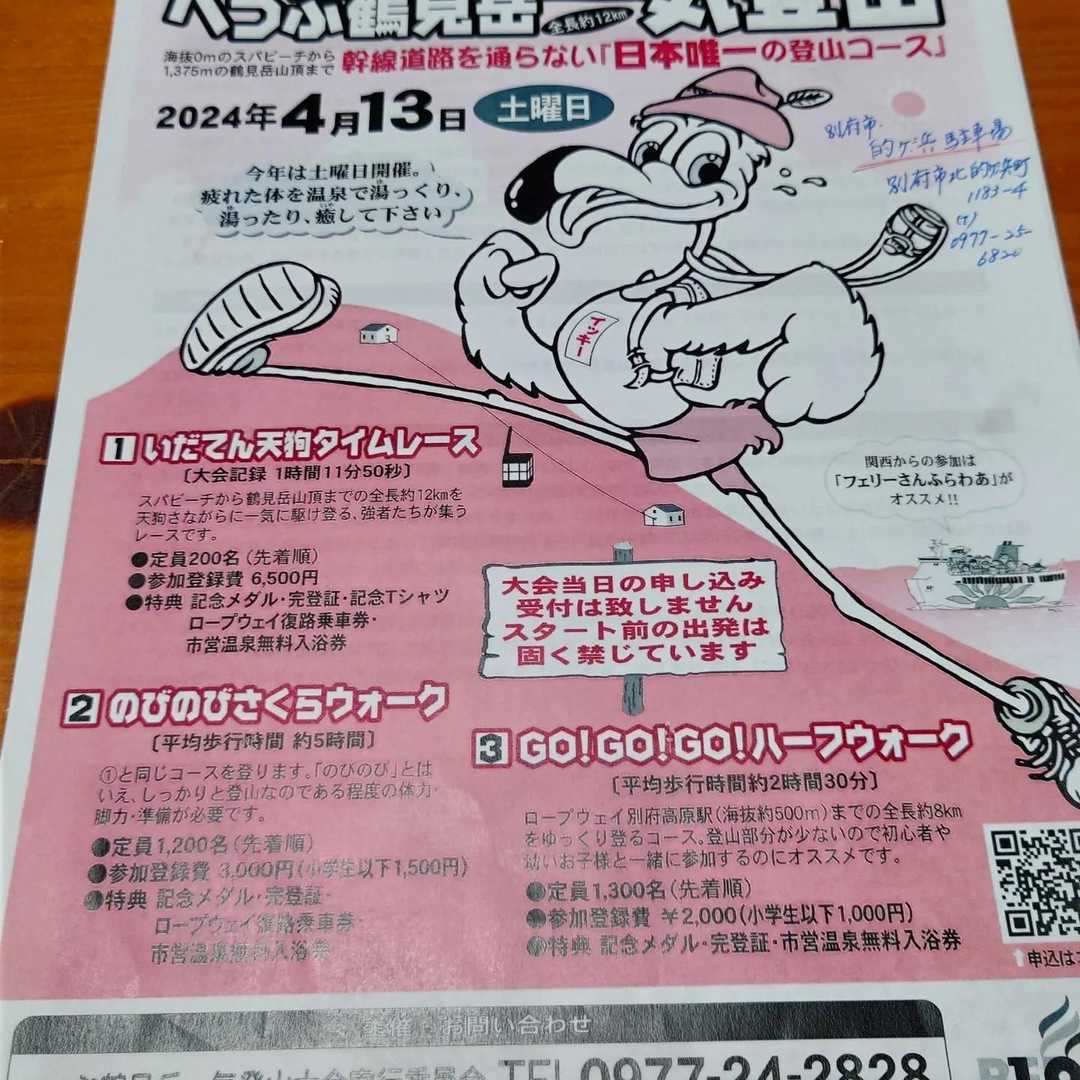 べっぷ鶴見岳一気登山
全長約12km
海抜0mのスパビーチから
1,375mの鶴見岳山頂まで
幹線道路を通らない「日本唯一の登山コース」
2024年4月13日 土曜日
今年は土曜日開催。
疲れた体を温泉で湯っくり、
湯ったり、癒して下さい
別府市
的ヶ浜駐車場
別府市北的ヶ浜町
1183-4
(T)
0977-25-
イッキー
1 いだてん天狗タイムレース
〔大会記録 1時間11分50秒〕
スパビーチから鶴見岳山頂までの全長約12kmを
天狗さながらに一気に駆け登る、強者たちが集う
レースです。
●定員200名(先着順)
●参加登録費 6,500円
●特典 記念メダル・完登証・記念Tシャツ
ロープウェイ復路乗車券・
市営温泉無料入浴券
関西からの参加は
「フェリーさんふらわあ」が
オススメ!!
大会当日の申し込み
受付は致しません
スタート前の出発は
固く禁じています
2 のびのびさくらウォーク
〔平均歩行時間 約5時間〕
①と同じコースを登ります。「のびのび」とは
いえ、しっかりと登山なのである程度の体力・
脚力・準備が必要です。
●定員1,200名(先着順)
●参加登録費 3,000円(小学生以下1,500円)
●特典 記念メダル・完登証・
ロープウェイ復路乗車券・
市営温泉無料入浴券
3 GO!GO!GO!ハーフウォーク
〔平均歩行時間約2時間30分〕
ロープウェイ別府高原駅(海抜約500m)までの全長約8km
をゆっくり登るコース。登山部分が少ないので初心者や
幼いお子様と一緒に参加するのにオススメです。
●定員1,300名(先着順)
●参加登録費 ￥2,000(小学生以下1,000円)
●特典 記念メダル・完登証・市営温泉無料入浴券
↑申込は
主催・お問い合わせ
TEL0977-24-2828